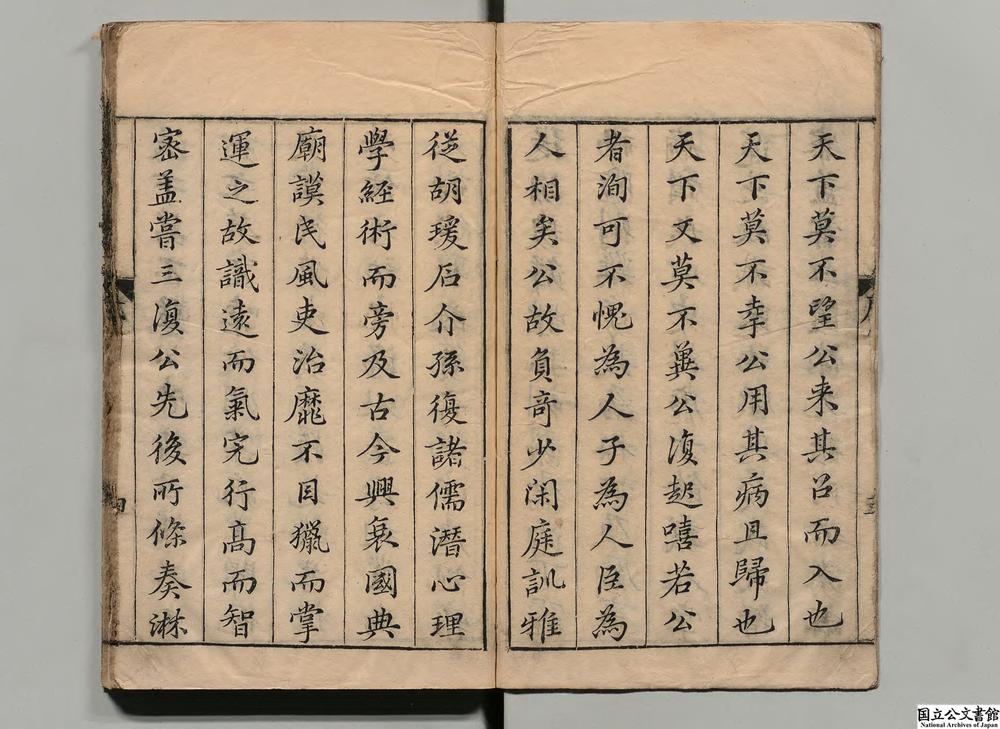 天下莫不望公来其召而入也
天下莫不幸公用其病且歸也
天下又莫不冀公復起嘻若公
者洵可不愧為人子為人臣為
人相矣公故負奇少閑庭訓雅
從胡瑗石介孫復諸儒潛心理
學經術而旁及古今興衰國典
廟謨民風吏治靡不目獵而掌
運之故識遠而氣完行髙而智
宻盖嘗三復公先後所條奏淋
四
国立公文書館
National Archives of Japan